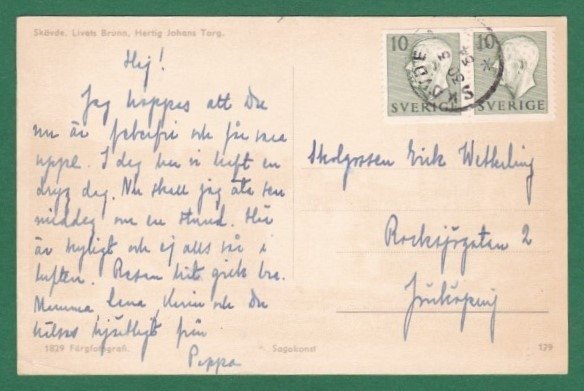 Skövde. Livets Brunn, Hertig Johans Torg.
10 SVERIGE
10 SVERIGE
SKÖVDE
Hej!
Jag hoppas att Du
nu är feberfri och får vara
uppe. I dag har vi haft en
dryg dag. Nu skall jag äta sen
middag om en stund. Här
är kyligt och ej alls så i
luften. Resan hit gick bra.
Mamma, Lena, Karin och Du
hälsas hjärtligt från
Pappa
Skolgossen Erik Wetterling
Rocksjögatan 2
Jönköping
1829 Färgfotografi.
Sagokonst
139